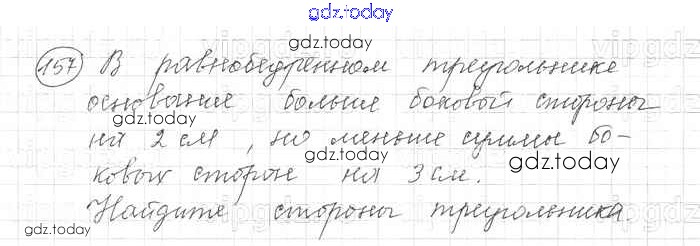 gdz.today
157 В равнобедренном треугольнике
gdz.today
основание больше боковой стороны
gdz.today
на 2 см, но меньше суммы бо-
gdz.today
gdz.today
ковых сторон на 3 см.
Найдите стороны треугольника.
gdz.today
gdz.today